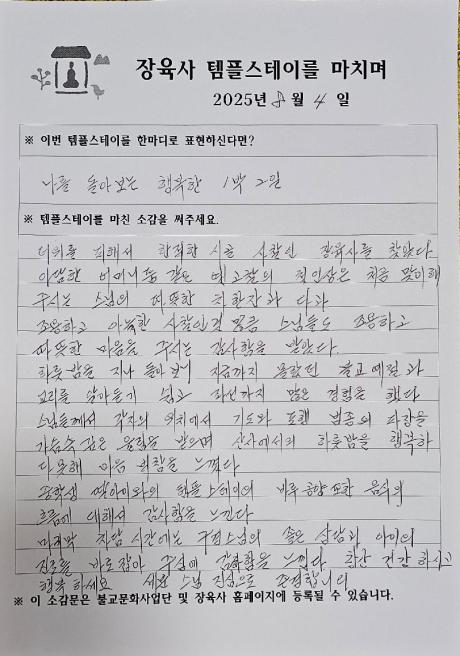 장육사 템플스테이를 마치며
2025년 8월 4일
※ 이번 템플스테이를 한마디로 표현하신다면?
나를 돌아보는 행복한 1박 2일
※ 템플스테이를 마친 소감을 써주세요.
더위를 피해서 한적한 시골 사찰인 장육사를 찾았다
아담한 어머니품 같은 옛고찰의 첫인상은 처음 맞이해
주시는 스님의 따뜻한 차한잔과 다과
조용하고 아늑한 사찰인것 만큼 스님들도 조용하고
따뜻한 마음을 주시는 감사함을 받았다.
하룻밤을 지나 돌아보니 지금까지 몰랐던 불교예절과
교리를 알아듣기 쉽고 자선까지 많은 경험을 했다
스님들께서 각자의 위치에서 기도와 또한 범종의 파장을
가슴속 깊은 울림을 받으며 산사에서의 하룻밤을 행복하
다 못해 마음 벅참을 느꼈다
중학생 딸아이와의 템플스테이의 바루공양 또한 음식의
흐름에 대해서 감사함을 느낀다
마지막 차담시간에는 스님의 좋은 상담과 아이의
진로를 바로잡아 주심에 감사함을 느낀다 항상 건강하시고
행복하세요 스님 진심으로 존경합니다
※ 이 소감문은 불교문화사업단 및 장육사 홈페이지에 등록될 수 있습니다.